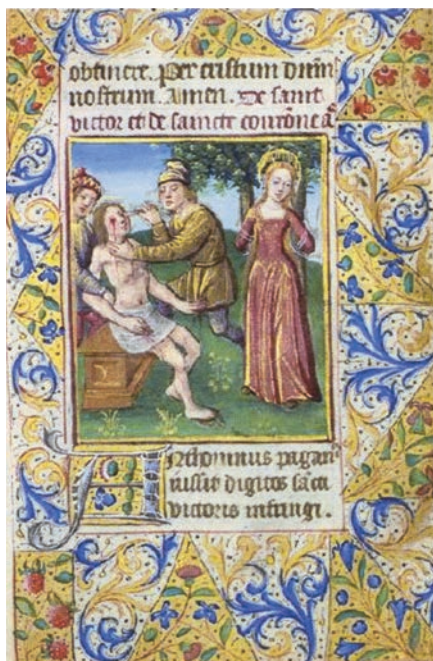 obtinere. Per cristum dnm̄
nostrum. Amen. De saint
victor et de saincte couronne añ
Anthonius pagan'
iussit digitos sācti
victoris infringi.